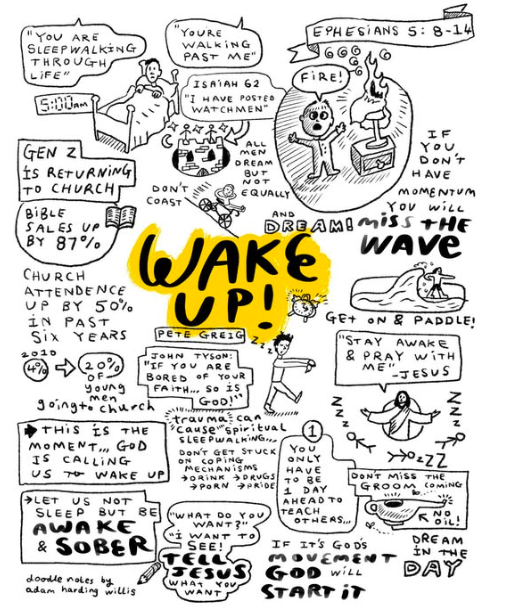 "YOU ARE
SLEEPWALKING
THROUGH
LIFE"
5:00AM
"YOURE
WALKING
PAST ME"
EPHESIANS 5: 8-14
ISAIAH 62
"I HAVE POSTED
WATCHMEN"
FIRE!
GEN Z
IS RETURNING
TO CHURCH
BIBLE
SALES UP
BY 87%
DON'T
COAST
ALL
MEN
DREAM
BUT
NOT
EQUALLY
AND
DREAM!
IF
YOU
DON'T
HAVE
MOMENTUM
YOU WILL
MISS THE
WAVE
GET ON & PADDLE!
WAKE
UP!
PETE GREIG
CHURCH
ATTENDENCE
UP BY 50%
IN PAST
SIX YEARS
2010
4%
20%
OF
young
men
going to church
JOHN TYSON:
"IF YOU ARE
BORED OF YOUR
FAITH... SO IS
GOD!"
Z Z Z
"STAY AWAKE
& PRAY WITH
ME"
-JESUS
Z
Z
Z
Z
Z
Z
ZZZ
THIS IS THE
MOMENT... GOD
IS CALLING
US TO WAKE UP
trauma can
cause spiritual
SLEEPWALKING...
DON'T GET STUCK
ON COPING
MECHANISMS
→DRINK →DRUGS
→PORN →PRIDE
1
YOU
ONLY
HAVE
TO BE
1 DAY
AHEAD TO
TEACH
OTHERS...
DON'T MISS THE
GROOM COMING
NO
OIL!
→LET US NOT
SLEEP BUT BE
AWAKE
& SOBER
"WHAT DO YOU
WANT?"
"I WANT TO
SEE!
TELL
JESUS
WHAT YOU
WANT
IF IT'S GOD'S
MOVEMENT
GOD WILL
START IT
DREAM
IN THE
DAY
doodle notes by
adam harding willis